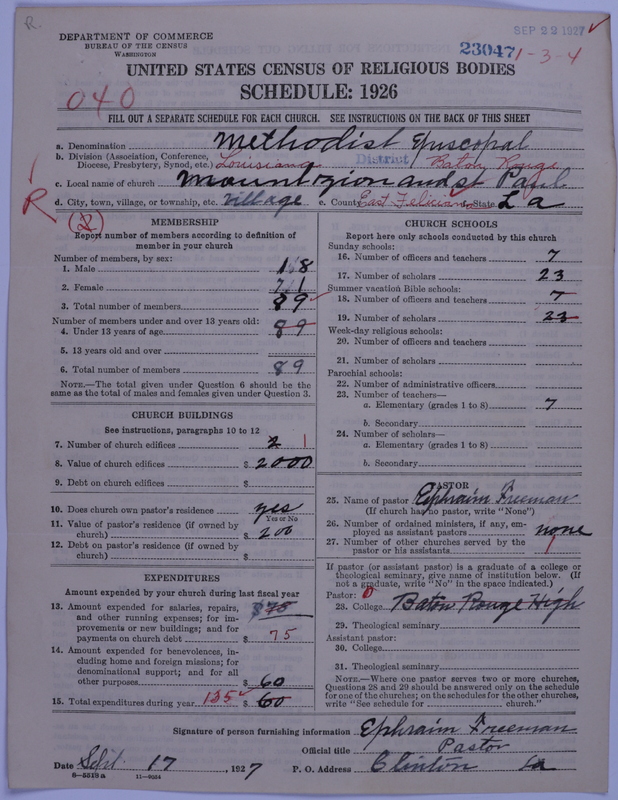 R.
SEP 22 1927
DEPARTMENT OF COMMERCE
BUREAU OF THE CENSUS
WASHINGTON
23047 1-3-4
UNITED STATES CENSUS OF RELIGIOUS BODIES
SCHEDULE: 1926
040
FILL OUT A SEPARATE SCHEDULE FOR EACH CHURCH. SEE INSTRUCTIONS ON THE BACK OF THIS SHEET
a. Denomination Methodist Episcopal
b. Division (Association, Conference, Diocese, Presbytery, Synod, etc.) Louisiana District Baton Rouge
c. Local name of church Mount zion and St Paul
d. City, town, village, or township, etc. Village e. County East Feliciana f. State La
R
MEMBERSHIP
Report number of members according to definition of
member in your church
Number of members, by sex:
1. Male 18
2. Female 71
3. Total number of members 89
Number of members under and over 13 years old:
4. Under 13 years of age 89
5. 13 years old and over
6. Total number of members 89
NOTE.—The total given under Question 6 should be the
same as the total of males and females given under Question 3.
CHURCH BUILDINGS
See instructions, paragraphs 10 to 12
7. Number of church edifices 2 1
8. Value of church edifices $ 2000
9. Debt on church edifices $
10. Does church own pastor's residence? yes
Yes or No
11. Value of pastor's residence (if owned by
church) $ 200
12. Debt on pastor's residence (if owned by
church) $
EXPENDITURES
Amount expended by your church during last fiscal year
13. Amount expended for salaries, repairs, $75
and other running expenses; for im-
provements or new buildings; and for
payments on church debt $ 75
14. Amount expended for benevolences, in-
cluding home and foreign missions; for
denominational support; and for all
other purposes $ 60
15. Total expenditures during year 135 $ 60
CHURCH SCHOOLS
Report here only schools conducted by this church
Sunday schools:
16. Number of officers and teachers 7
17. Number of scholars 23
Summer vacation Bible schools:
18. Number of officers and teachers 7
19. Number of scholars 23
Week-day religious schools:
20. Number of officers and teachers
21. Number of scholars
Parochial schools:
22. Number of administrative officers
23. Number of teachers—
a. Elementary (grades 1 to 8) 7
b. Secondary
24. Number of scholars—
a. Elementary (grades 1 to 8)
b. Secondary
PASTOR
25. Name of pastor Ephraim Freeman
(If church has no pastor, write "None")
26. Number of ordained ministers, if any, em-
ployed as assistant pastors none
27. Number of other churches served by the
pastor or his assistants 1
If pastor (or assistant pastor) is a graduate of a college or
theological seminary, give name of institution below. (If
not a graduate, write "No" in the space indicated.)
Pastor: 0
28. College Baton Rouge High
29. Theological seminary
Assistant pastor:
30. College
31. Theological seminary
NOTE.—Where one pastor serves two or more churches,
Questions 28 and 29 should be answered only on the schedule
for one of the churches; on the schedules for the other churches,
write "See schedule for church."
Signature of person furnishing information Ephraim Freeman
Official title Pastor
Date Sept. 17, 1927 P. O. Address Clinton La
8—5518a 11—9024